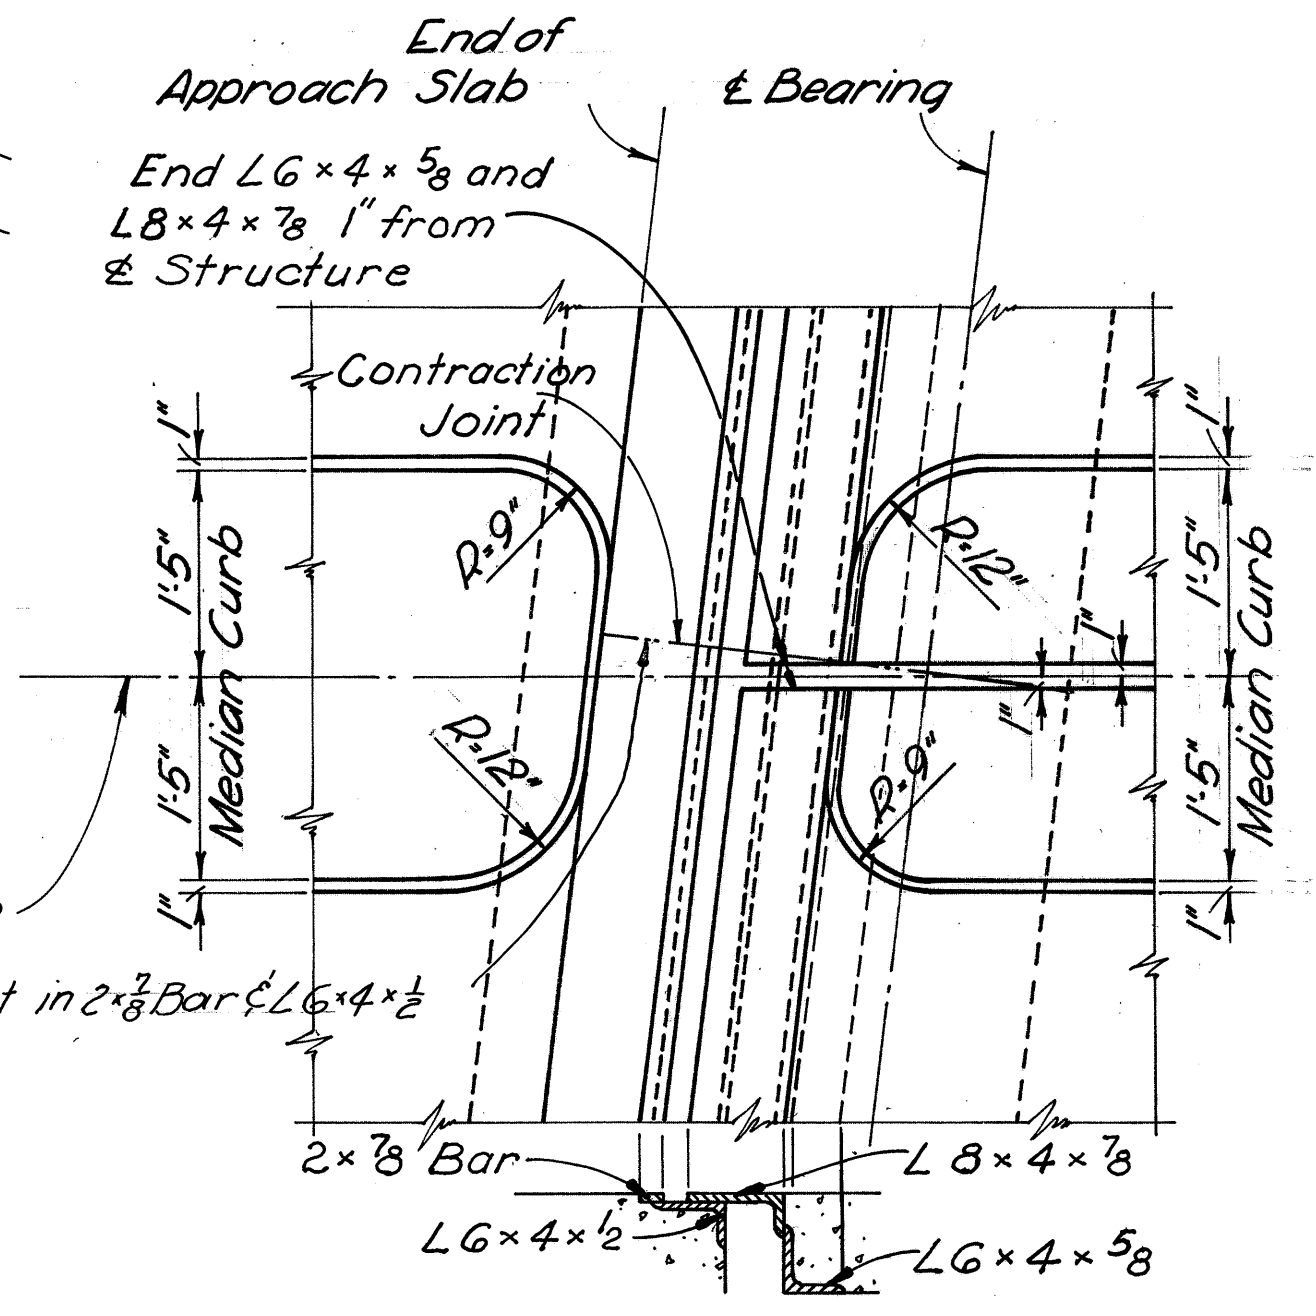 End of
Approach Slab
℄ Bearing
End L6 × 4 × 5/8 and
L8 × 4 × 7/8 1" from
℄ Structure
Contraction
Joint
1"
1'-5"
Median Curb
1'-5"
1"
R=9"
R=12"
R=12"
R=9"
1"
1"
1"
1'-5"
Median Curb
1'-5"
1"
t in 2×7/8 Bar & L6×4×1/2
2× 7/8 Bar
L 8 × 4 × 7/8
L6×4×1/2
L6 × 4 × 5/8